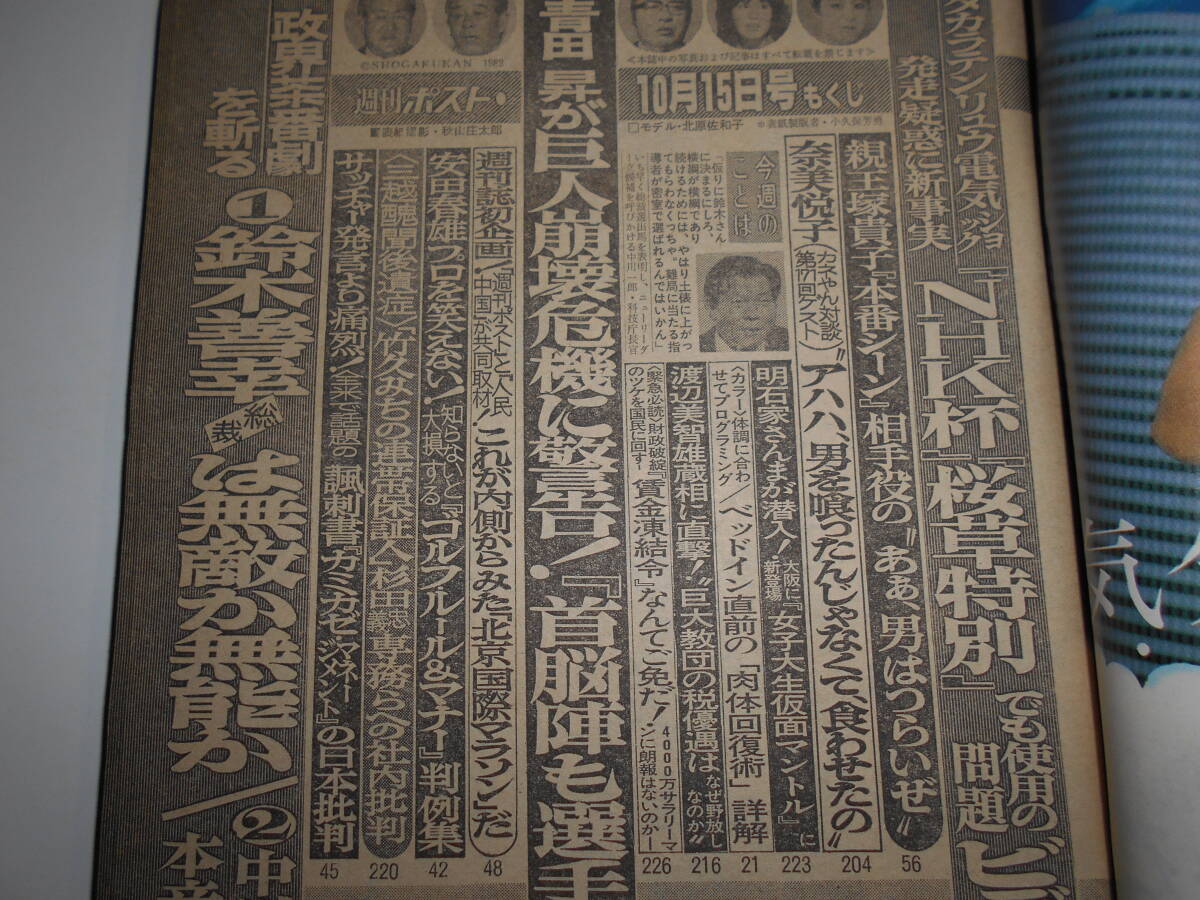 タカラテンリュウ電気ショック
発走疑惑に新事実
『NHK杯』『桜草特別』
でも使用の
問題
ビ
<本誌中の写真および記事はすべて転載を禁じます>
10月15日号もくじ
□モデル・北原佐和子
©SHOGAKUKAN 1982
週刊ポスト・
■表紙撮影・秋山庄太郎
親王塚貴子『本番シーン』相手役の〝あぁ、男はつらいぜ〟
56
奈美悦子(カネやん対談 第171回ゲスト)〝アハハ、男を喰ったんじゃなくて、食わせたの〟
204
今週のことば
「仮りに鈴木さんに決まるにしろ、横綱が横綱であり続けるためには、やはり土俵に上がってもらわなくっちゃ。難局に当たる指導者が密室で選ばれるんではいかん」
明石家さんまが潜入!大阪に新登場『女子大生仮面マントル』に
223
<カラー>体調に合わせてプログラミング/ベッドイン直前の「肉体回復術」詳解
21
渡辺美智雄蔵相に直撃!〝巨大教団の税優遇はなぜ野放しなのか〟
216
<緊急必読>財政破綻のツケを国民に回す!『賃金凍結令』なんてご免だ!4000万サラリーマンに朗報はないのか
226
青田昇が巨人崩壊危機に警告!『首脳陣も選手
週刊誌初企画/「週刊ポスト」と「人民中国」が共同取材!これが内側からみた「北京国際マラソン」だ
48
安田春雄プロを笑えない!知らないと大損する『ゴルフルール&マナー』判例集
42
<三越醜聞後遺症>竹久みちの連帯保証人・杉田忠義専務らへの社内批判
220
サッチャー発言より痛烈!全米で話題の諷刺書『カミカゼ・マネジャーメント』の日本批判
45
政界茶番劇を斬る
①鈴木善幸総裁は無敵か無能か/
②中
本音
気.